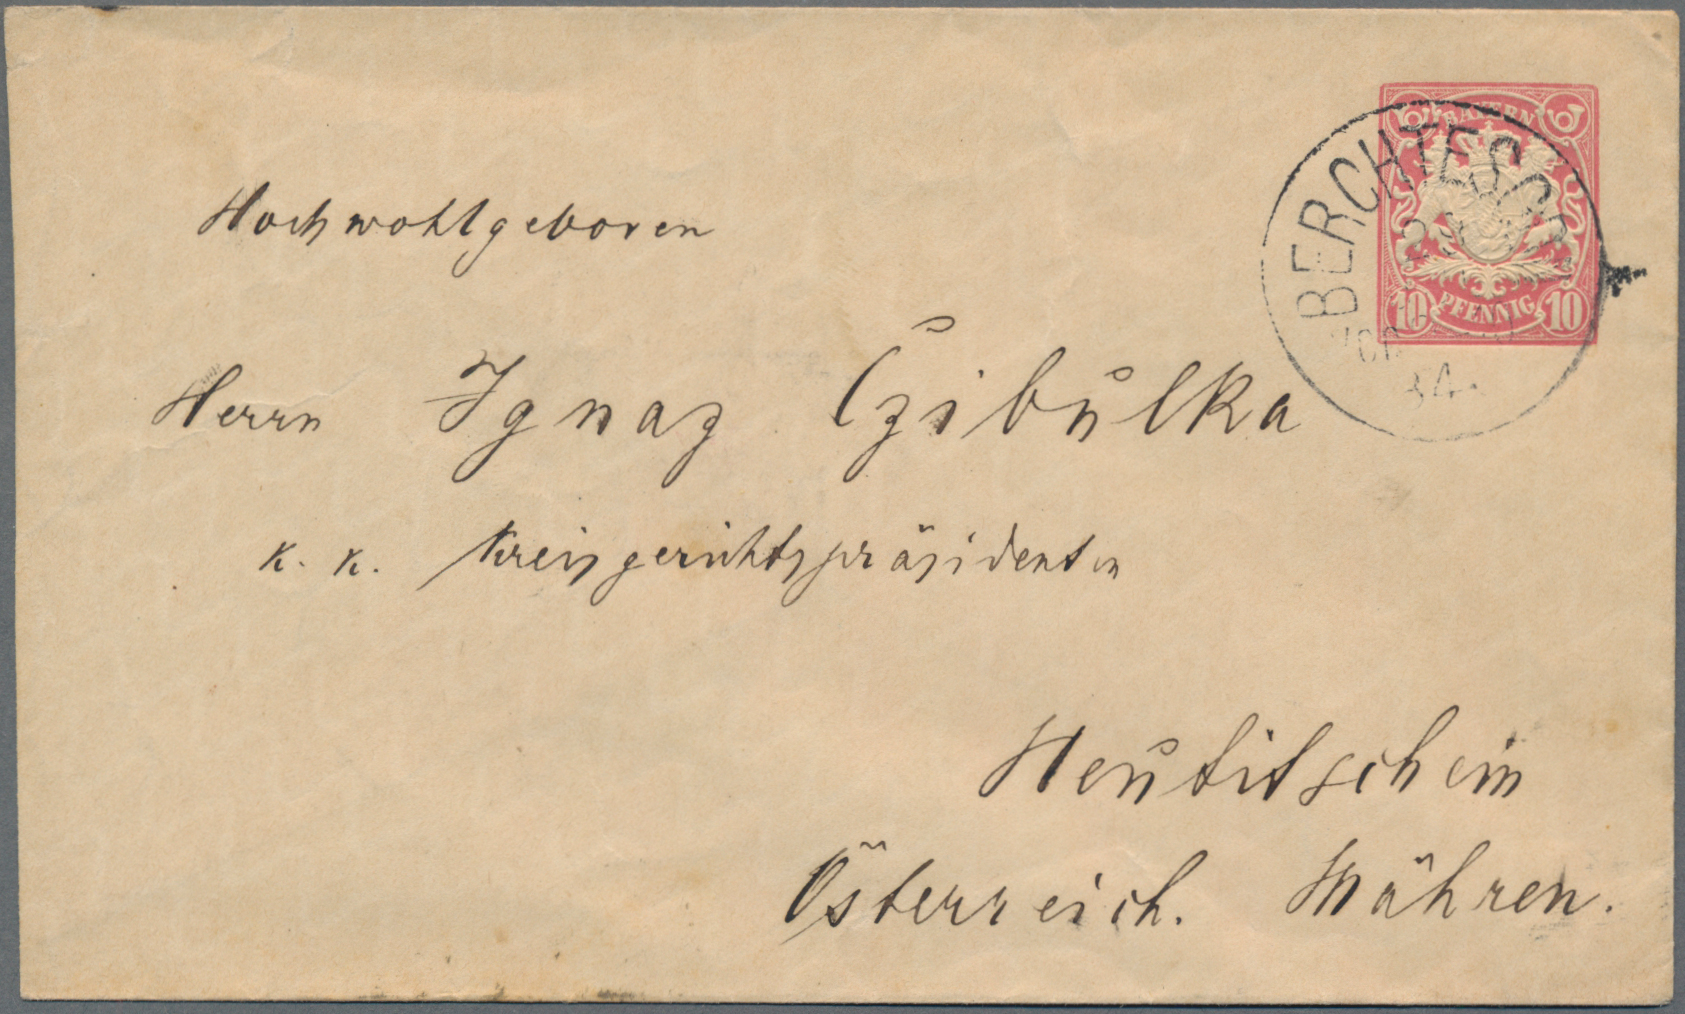 BAYERN
10 PFENNIG 10
BERCHTESG
Hochwohlgeboren
Herrn Ignaz Czibulka
K. K. Kreisgerichtspräsidenten
Neutitschein
Österreich. Mähren.